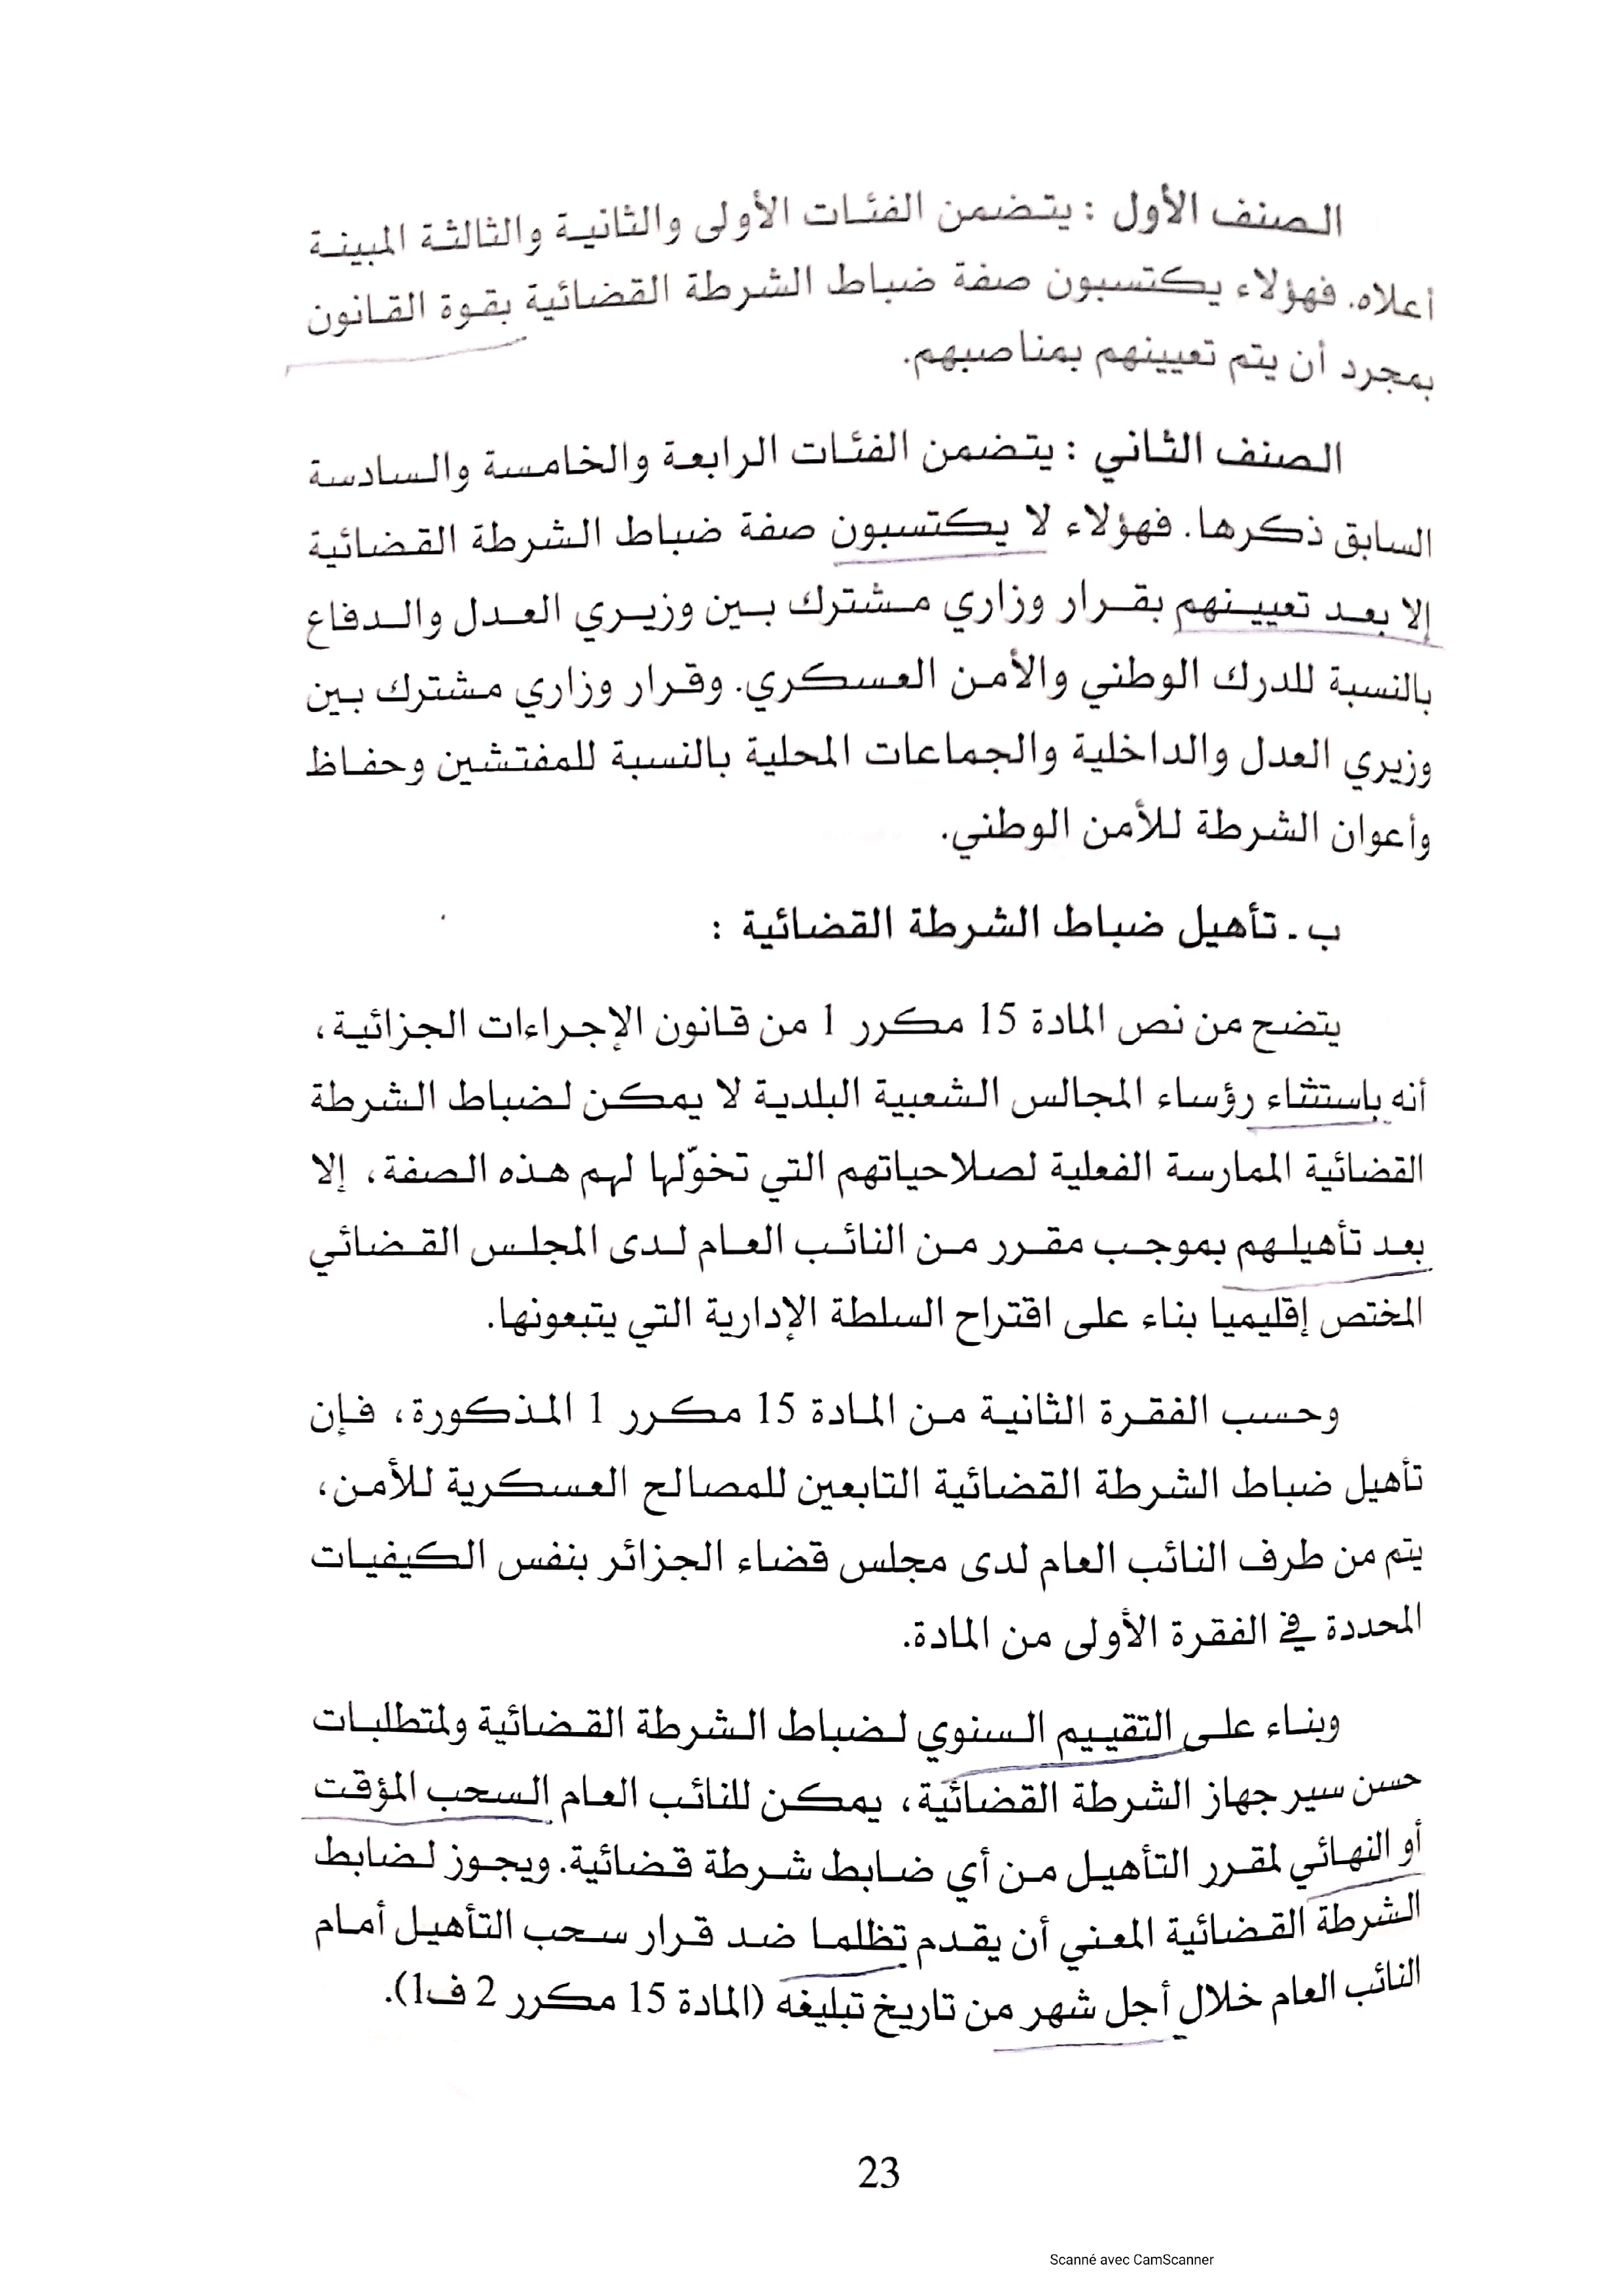 الصنف الأول : يتضمن الفئات الأولى والثانية والثالثة المبينة
أعلاه. فهؤلاء يكتسبون صفة ضباط الشرطة القضائية بقوة القانون
بمجرد أن يتم تعيينهم بمناصبهم.
الصنف الثاني : يتضمن الفئات الرابعة والخامسة والسادسة
السابق ذكرها. فهؤلاء لا يكتسبون صفة ضباط الشرطة القضائية
إلا بعد تعيينهم بقرار وزاري مشترك بين وزيري العدل والدفاع
بالنسبة للدرك الوطني والأمن العسكري. وقرار وزاري مشترك بين
وزيري العدل والداخلية والجماعات المحلية بالنسبة للمفتشين وحفاظ
وأعوان الشرطة للأمن الوطني.
ب ـ تأهيل ضباط الشرطة القضائية :
يتضح من نص المادة 15 مكرر 1 من قانون الإجراءات الجزائية،
أنه باستثناء رؤساء المجالس الشعبية البلدية لا يمكن لضباط الشرطة
القضائية الممارسة الفعلية لصلاحياتهم التي تخوّلها لهم هذه الصفة، إلا
بعد تأهيلهم بموجب مقرر من النائب العام لدى المجلس القضائي
المختص إقليميا بناء على اقتراح السلطة الإدارية التي يتبعونها.
وحسب الفقرة الثانية من المادة 15 مكرر 1 المذكورة، فإن
تأهيل ضباط الشرطة القضائية التابعين للمصالح العسكرية للأمن،
يتم من طرف النائب العام لدى مجلس قضاء الجزائر بنفس الكيفيات
المحددة في الفقرة الأولى من المادة.
وبناء على التقييم السنوي لضباط الشرطة القضائية ولمتطلبات
حسن سير جهاز الشرطة القضائية، يمكن للنائب العام السحب المؤقت
أو النهائي لمقرر التأهيل من أي ضابط شرطة قضائية. ويجوز لضابط
الشرطة القضائية المعني أن يقدم تظلما ضد قرار سحب التأهيل أمام
النائب العام خلال أجل شهر من تاريخ تبليغه (المادة 15 مكرر 2 ف1).
23
Scanné avec CamScanner